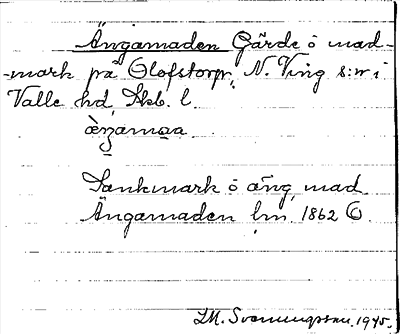 Ängamaden Gärde o mad-
-mark på Olofstorp, N. Ving s:n i
Valle hd, Skb. l.
Sankmark o äng, mad
Ängamaden lm. 1862 6.
LM. Svenungsson. 1945.